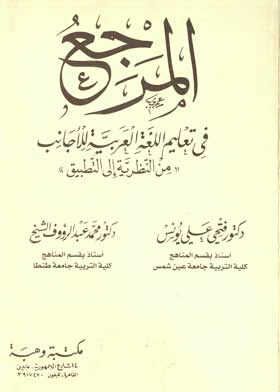 المرجع
في تعليم اللغة العربية للأجانب
«من النظرية إلى التطبيق»
دكتور فتحي علي يونس
أستاذ بقسم المناهج
كلية التربية جامعة عين شمس
دكتور محمد عبد الرؤوف الشيخ
أستاذ بقسم المناهج
كلية التربية جامعة طنطا
مكتبة وهبة
١٤ شارع الجمهورية. عابدين
القاهرة. تليفون ٣٩١٧٤٧٠